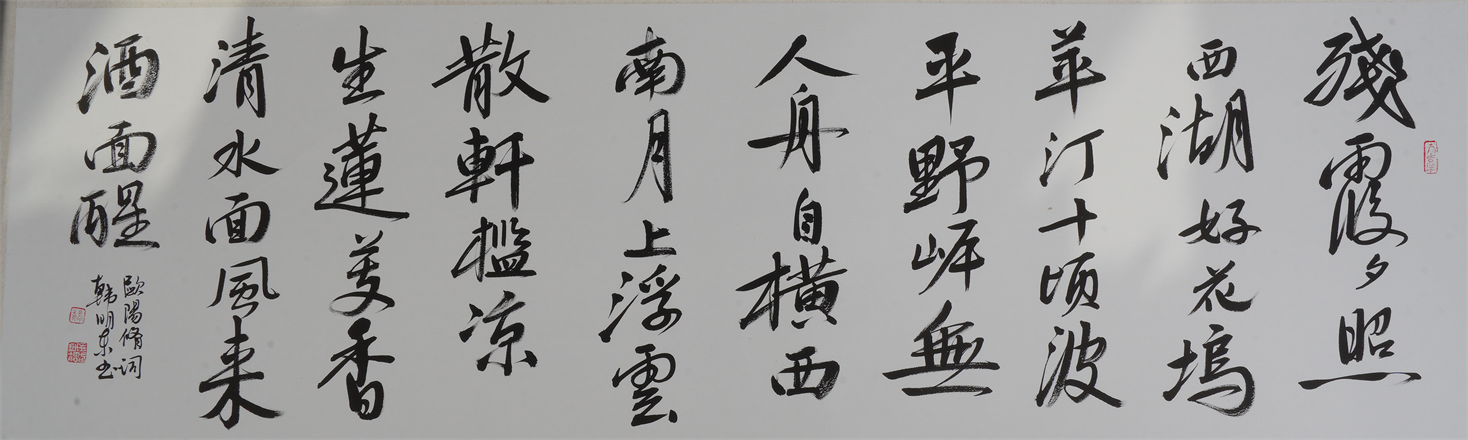 殘霞夕照
西湖好花塢
苹汀十頃波
平野岸無
人舟自橫西
南月上浮雲
散軒檻凉
生蓮芰香
清水面風来
酒面醒
歐陽脩词
韩明东书